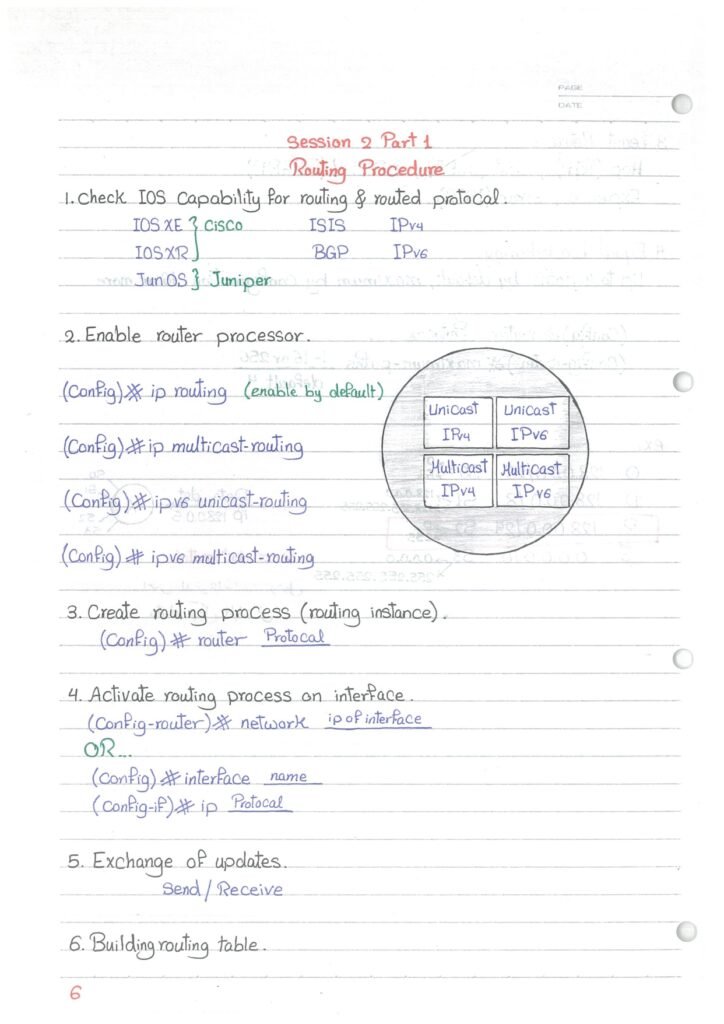 PAGE
DATE
Session 2 Part 1
Routing Procedure
1. Check IOS Capability for routing & routed protocal.
IOS XE } Cisco ISIS IPv4
IOS XR BGP IPv6
JunOS } Juniper
2. Enable router processor.
(Config)# ip routing (enable by default)
(Config)# ip multicast-routing
(Config)# ipv6 unicast-routing
(Config)# ipv6 multicast-routing
Unicast Unicast
IPv4 IPv6
Multicast Multicast
IPv4 IPv6
3. Create routing process (routing instance).
(Config)# router Protocal
4. Activate routing process on interface.
(Config-router)# network ip of interface
OR...
(Config)# interface name
(Config-if)# ip Protocal
5. Exchange of updates.
Send / Receive
6. Building routing table.
6